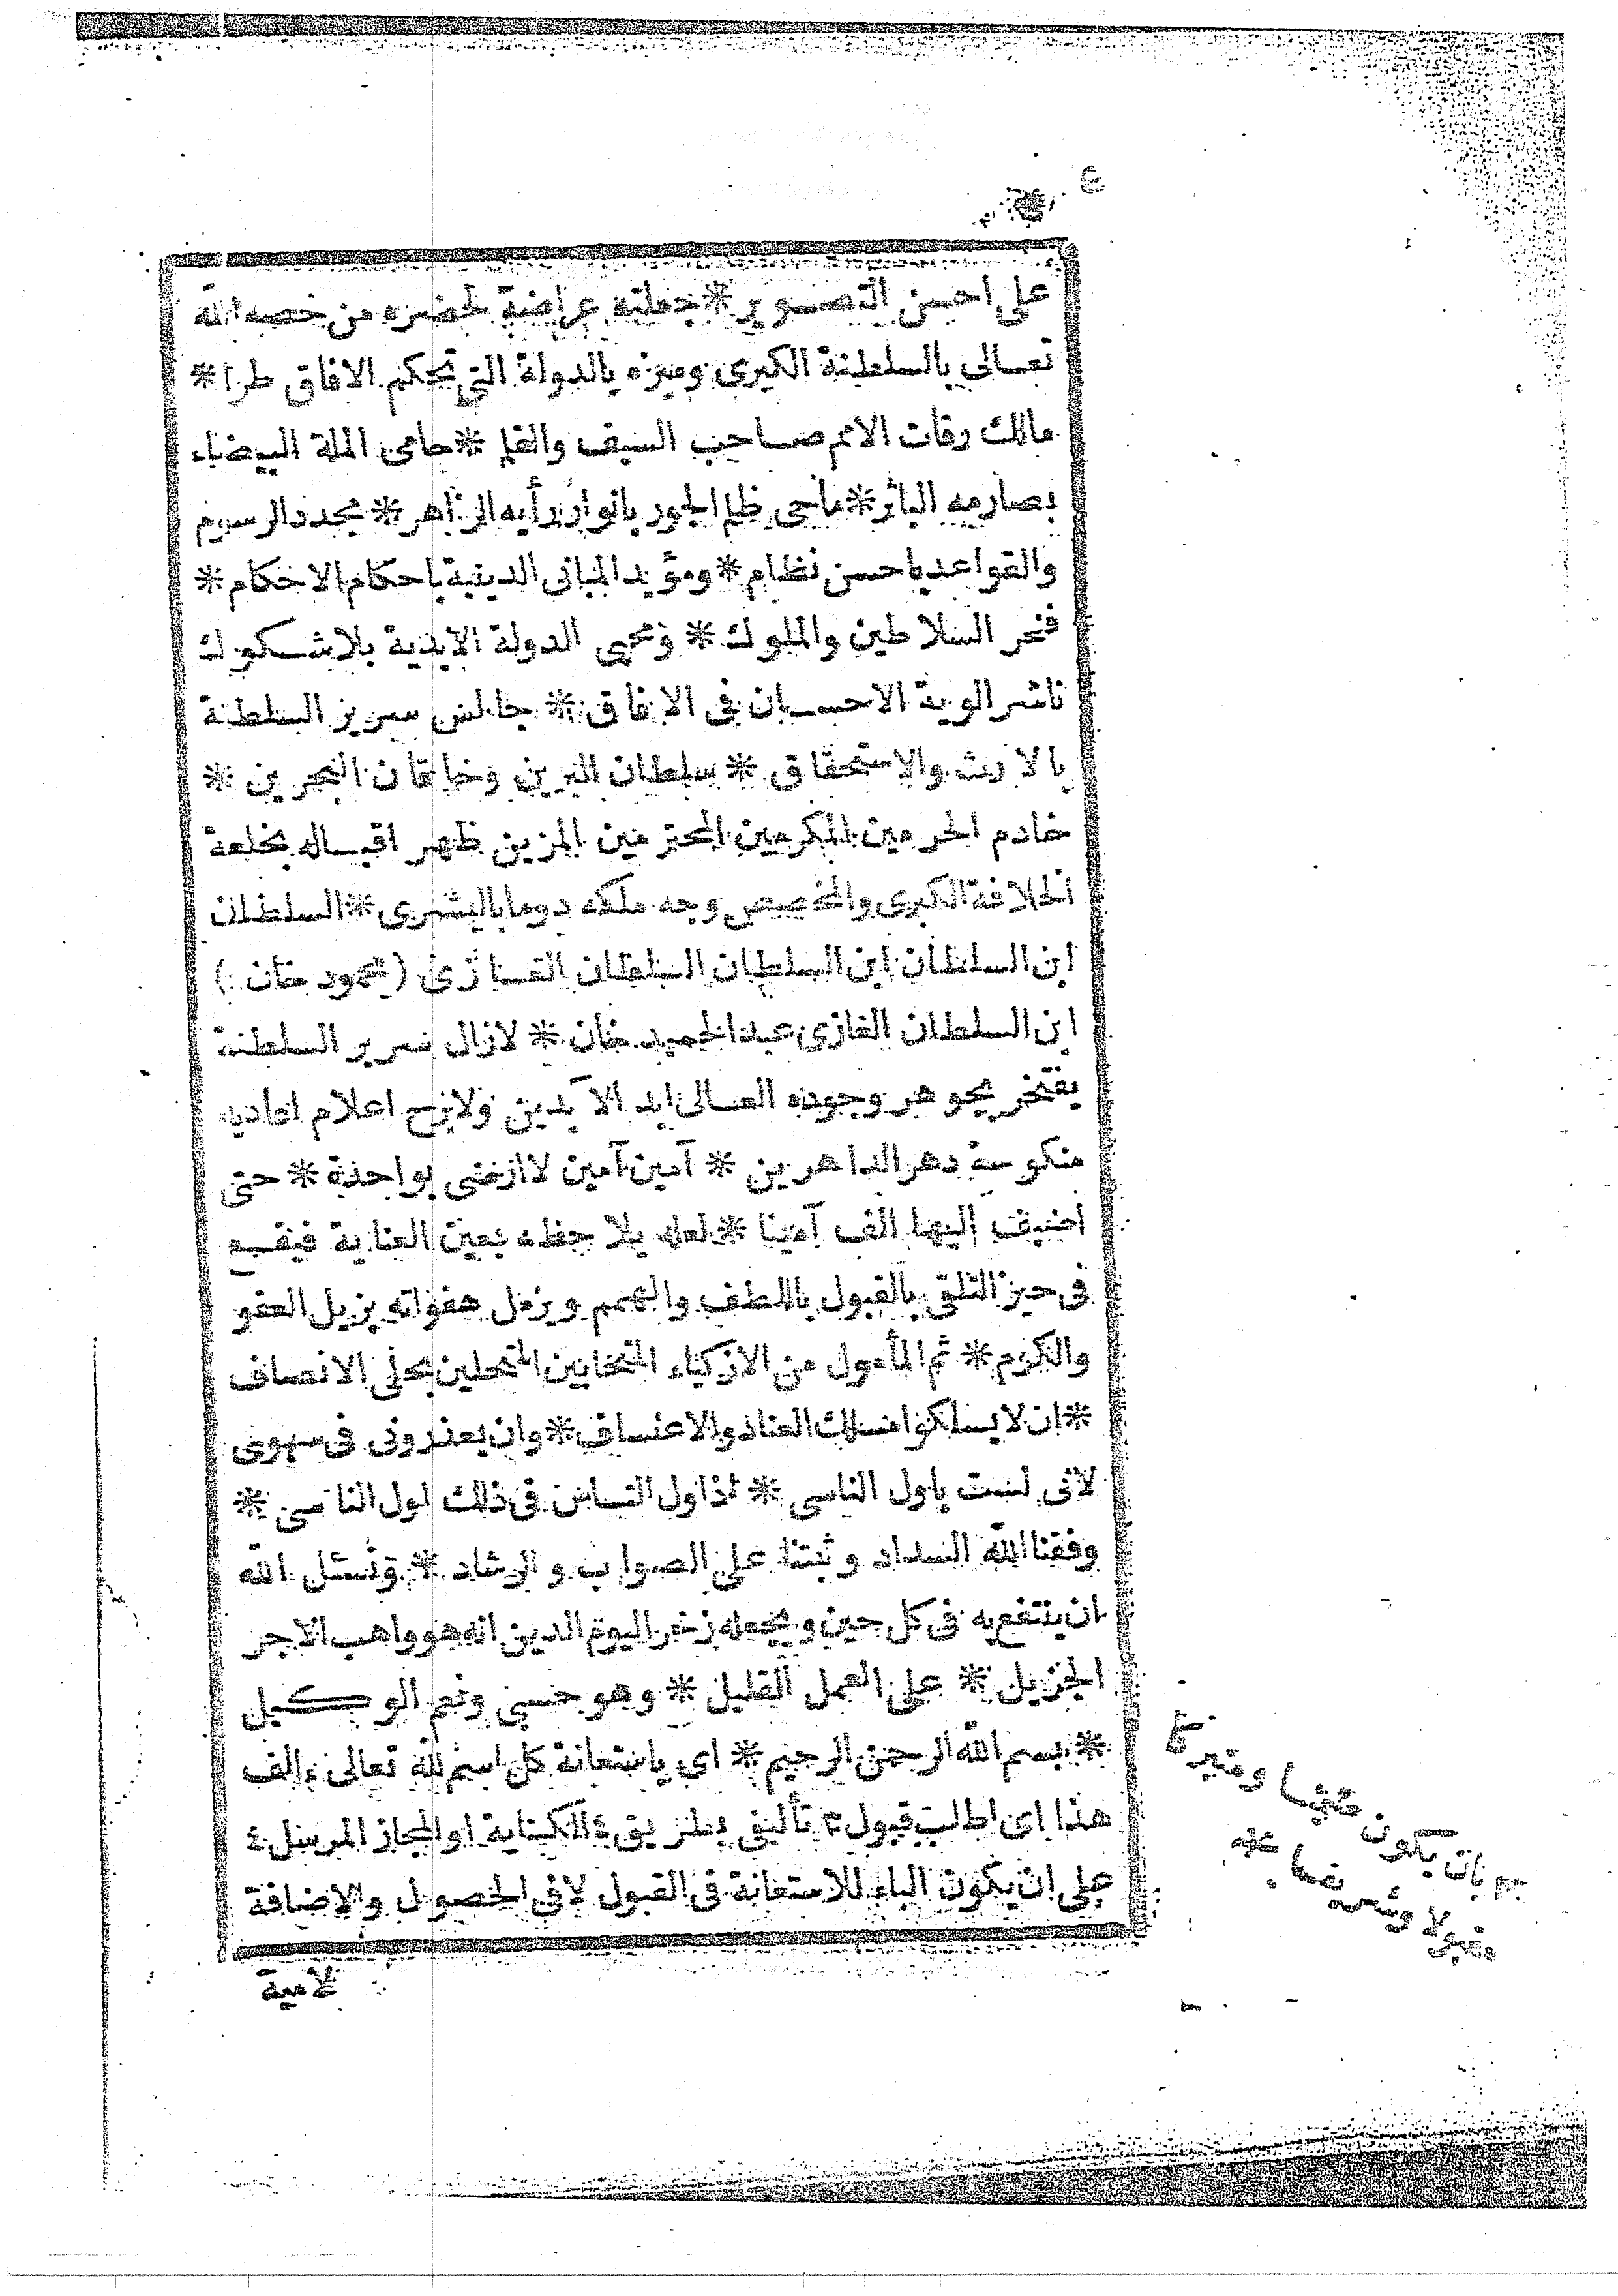 ٤
على احسن التصوير * جعلته عراضة لحضرة من خصه الله
تعالى بالسلطنة الكبرى وميزه بالدولة التى تحكم الافاق طرا *
مالك رقات الامم صاحب السيف والقلم * حامى الملة البيضاء
بصارمه الباتر * ماحى ظلم الجور بانوار رأيه الزاهر * مجدد الرسوم
والقواعد باحسن نظام * ومؤيد المبانى الدينية باحكام الاحكام *
فخر السلاطين والملوك * ومحيى الدولة الابدية بلا شكوك
ناشر الوية الاحسان فى الافاق * جالس سرير السلطنة
بالارث والاستحقاق * سلطان البرين وخاقان البحرين *
خادم الحرمين المكرمين المحترمين المزين ظهر اقباله بخلعة
الخلافة الكبرى والمخصص وجه ملكه دوما بالبشرى * السلطان
ابن السلطان ابن السلطان السلطان الغازى (محمود خان)
ابن السلطان الغازى عبدالحميد خان * لازال سرير السلطنة
يفتخر بجوهر وجوده العالى ابد الآبدين ولابرح اعلام اعاديه
منكوسة دهر الداهرين * آمين آمين لاارضى بواحدة * حتى
اضيف اليها الف آمينا * لعله يلاحظه بعين العناية فيقع
فى حيز التلقى بالقبول باللطف والهمم ويزمل هفواته بزيل العفو
والكرم * ثم المأمول من الازكياء المتحلين بحلى الانصاف
* ان لا يسلكوا مسلك العناد والاعتساف * وان يعذرونى فى سهوى
لانى لست باول الناسى * اذ اول الناس فى ذلك اول الناسى *
وفقنا الله السداد وثبتنا على الصواب والرشاد * ونسئل الله
ان ينتفع به فى كل حين ويجعله زخر اليوم الدين انه هو واهب الاجر
الجزيل * على العمل القليل * وهو حسبى ونعم الوكيل
* بسم الله الرحمن الرحيم * اى باستعانة كل اسم لله تعالى الف
هذا اى اطلب قبول تأليفى بطريق الكناية او المجاز المرسل
على ان يكون الباء للاستعانة فى القبول لا فى الحصول والاضافة
لامية
بان يكون ومتبركا